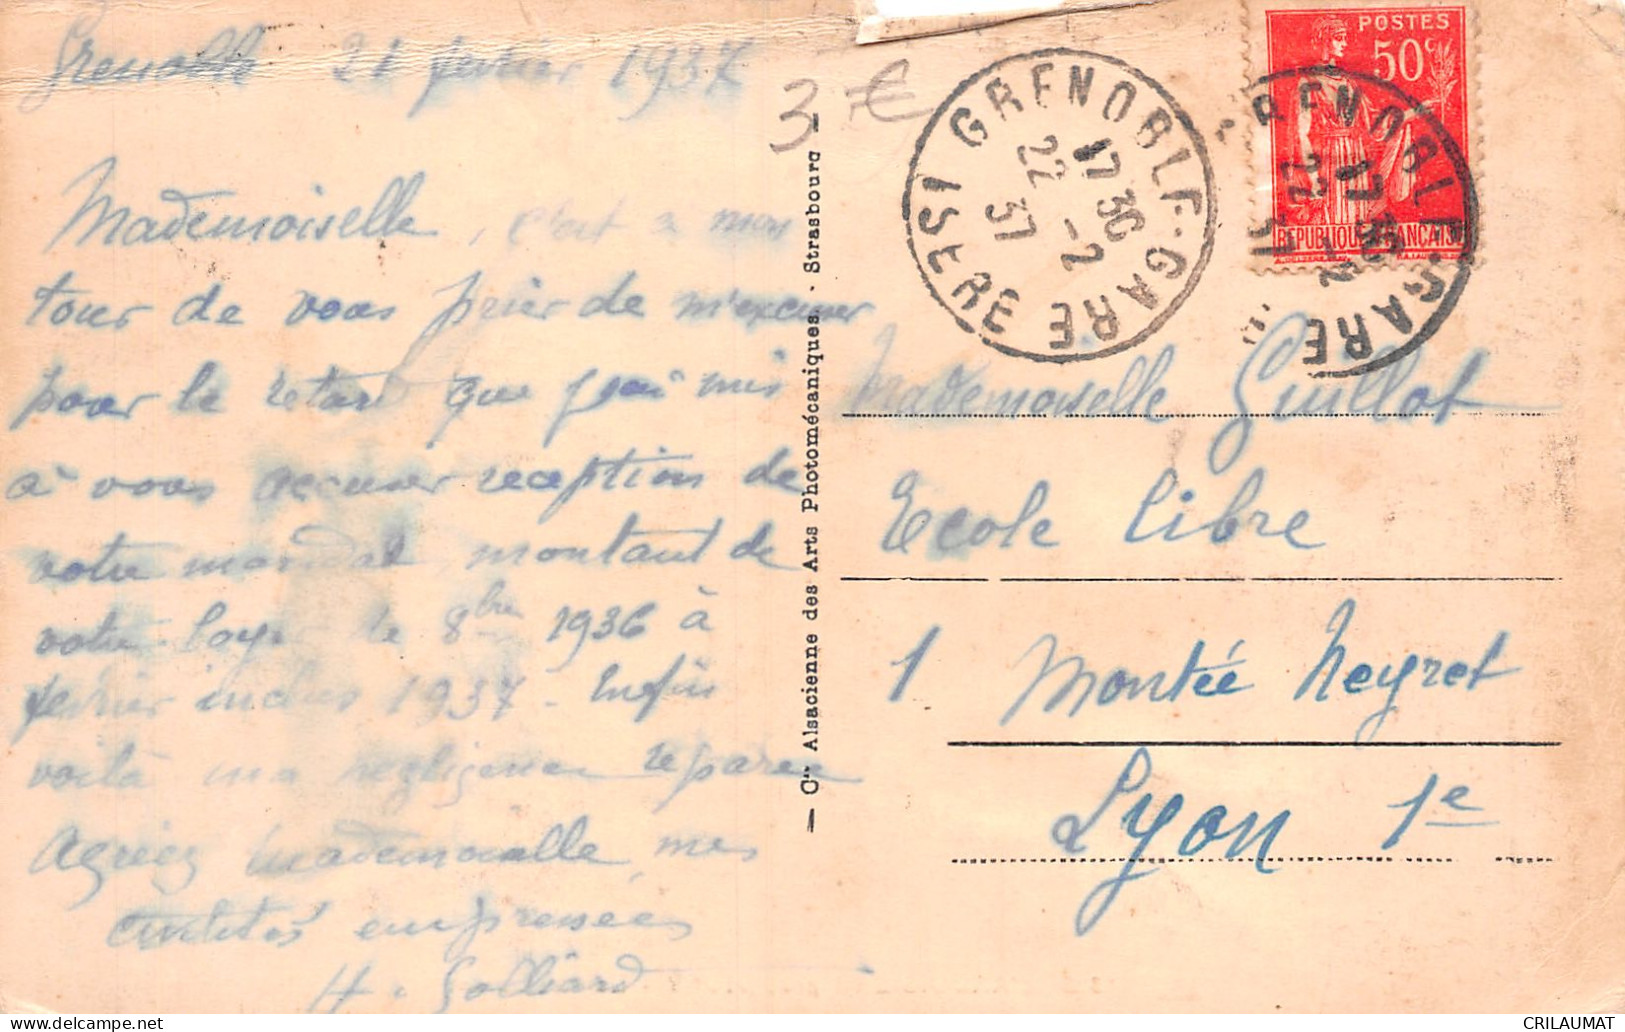 Grenoble 21 février 1937
Mademoiselle, c'est à mon
tour de vous prier de m'excuser
pour le retard que j'ai mis
à vous accuser reception de
votre mandat, montant de
votre loyer de 8bre 1936 à
février inclus 1937. Enfin
voilà ma negligence reparée
Agréez Mademoiselle mes
civilités empressées
H. Golliard
3 €
— Cie Alsacienne des Arts Photomécaniques. Strasbourg —
GRENOBLE-GARE
ISERE
17 30
22 -2
37
POSTES
50c
REPUBLIQUE FRANÇAISE
GRENOBLE-GARE
17 30
22 -2
37
Mademoiselle Guillot
Ecole Libre
1 Montée Neyret
Lyon 1e
CRILAUMAT